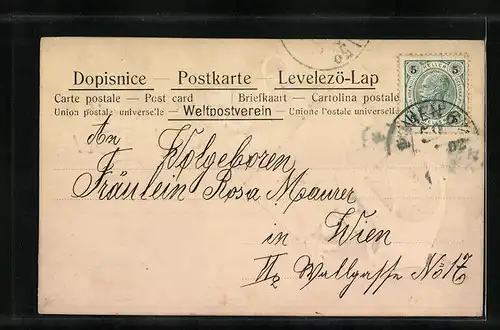 Dopisnice — Postkarte — Levelezö-Lap
Carte postale — Post card — Briefkaart — Cartolina postale
Union postale universelle — Weltpostverein — Unione Postale universelle
5 5
An
Wolgeboren
Fräulein Rosa Maurer
in Wien
Wallgasse No 17